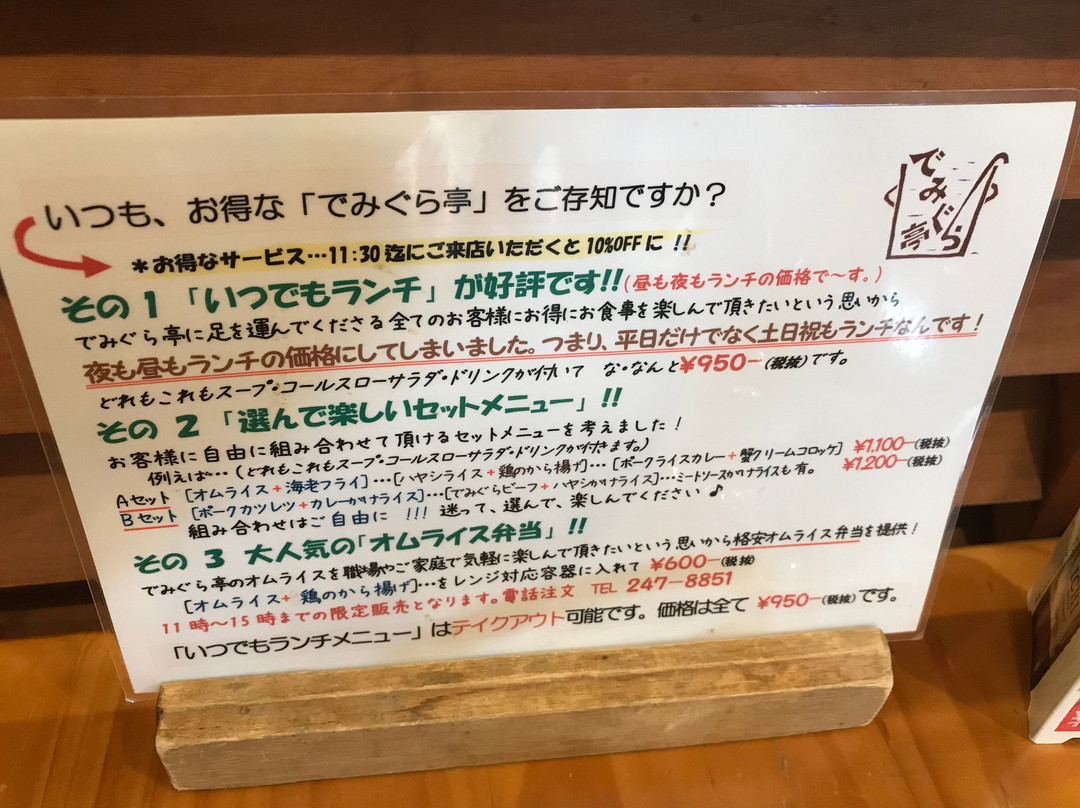 いつも、お得な「でみぐら亭」をご存知ですか?
でみぐら亭
*お得なサービス…11:30迄にご来店いただくと10%OFFに!!
その1「いつでもランチ」が好評です!!(昼も夜もランチの価格で~す。)
でみぐら亭に足を運んでくださる全てのお客様にお得にお食事を楽しんで頂きたいという思いから
夜も昼もランチの価格にしてしまいました。つまり、平日だけでなく土日祝もランチなんです!
どれもこれもスープ・コールスローサラダ・ドリンクが付いて な・なんと¥950-(税抜)です。
その2「選んで楽しいセットメニュー」!!
お客様に自由に組み合わせて頂けるセットメニューを考えました!
例えば…(どれもこれもスープ・コールスローサラダ・ドリンクが付きます。)
Aセット [オムライス+海老フライ]…[ハヤシライス+鶏のから揚げ]…[ポークライスカレー+蟹クリームコロッケ] ¥1,100-(税抜)
Bセット [ポークカツレツ+カレーかけライス]…[でみぐらビーフ+ハヤシかけライス]…ミートソースかけライスも有。 ¥1,200-(税抜)
組み合わせはご自由に !!! 迷って、選んで、楽しんでください♪
その3 大人気の「オムライス弁当」!!
でみぐら亭のオムライスを職場やご家庭で気軽に楽しんで頂きたいという思いから格安オムライス弁当を提供!
[オムライス+鶏のから揚げ]…をレンジ対応容器に入れて ¥600-(税抜)
11時~15時までの限定販売となります。電話注文 TEL 247-8851
「いつでもランチメニュー」はテイクアウト可能です。価格は全て ¥950-(税抜)です。